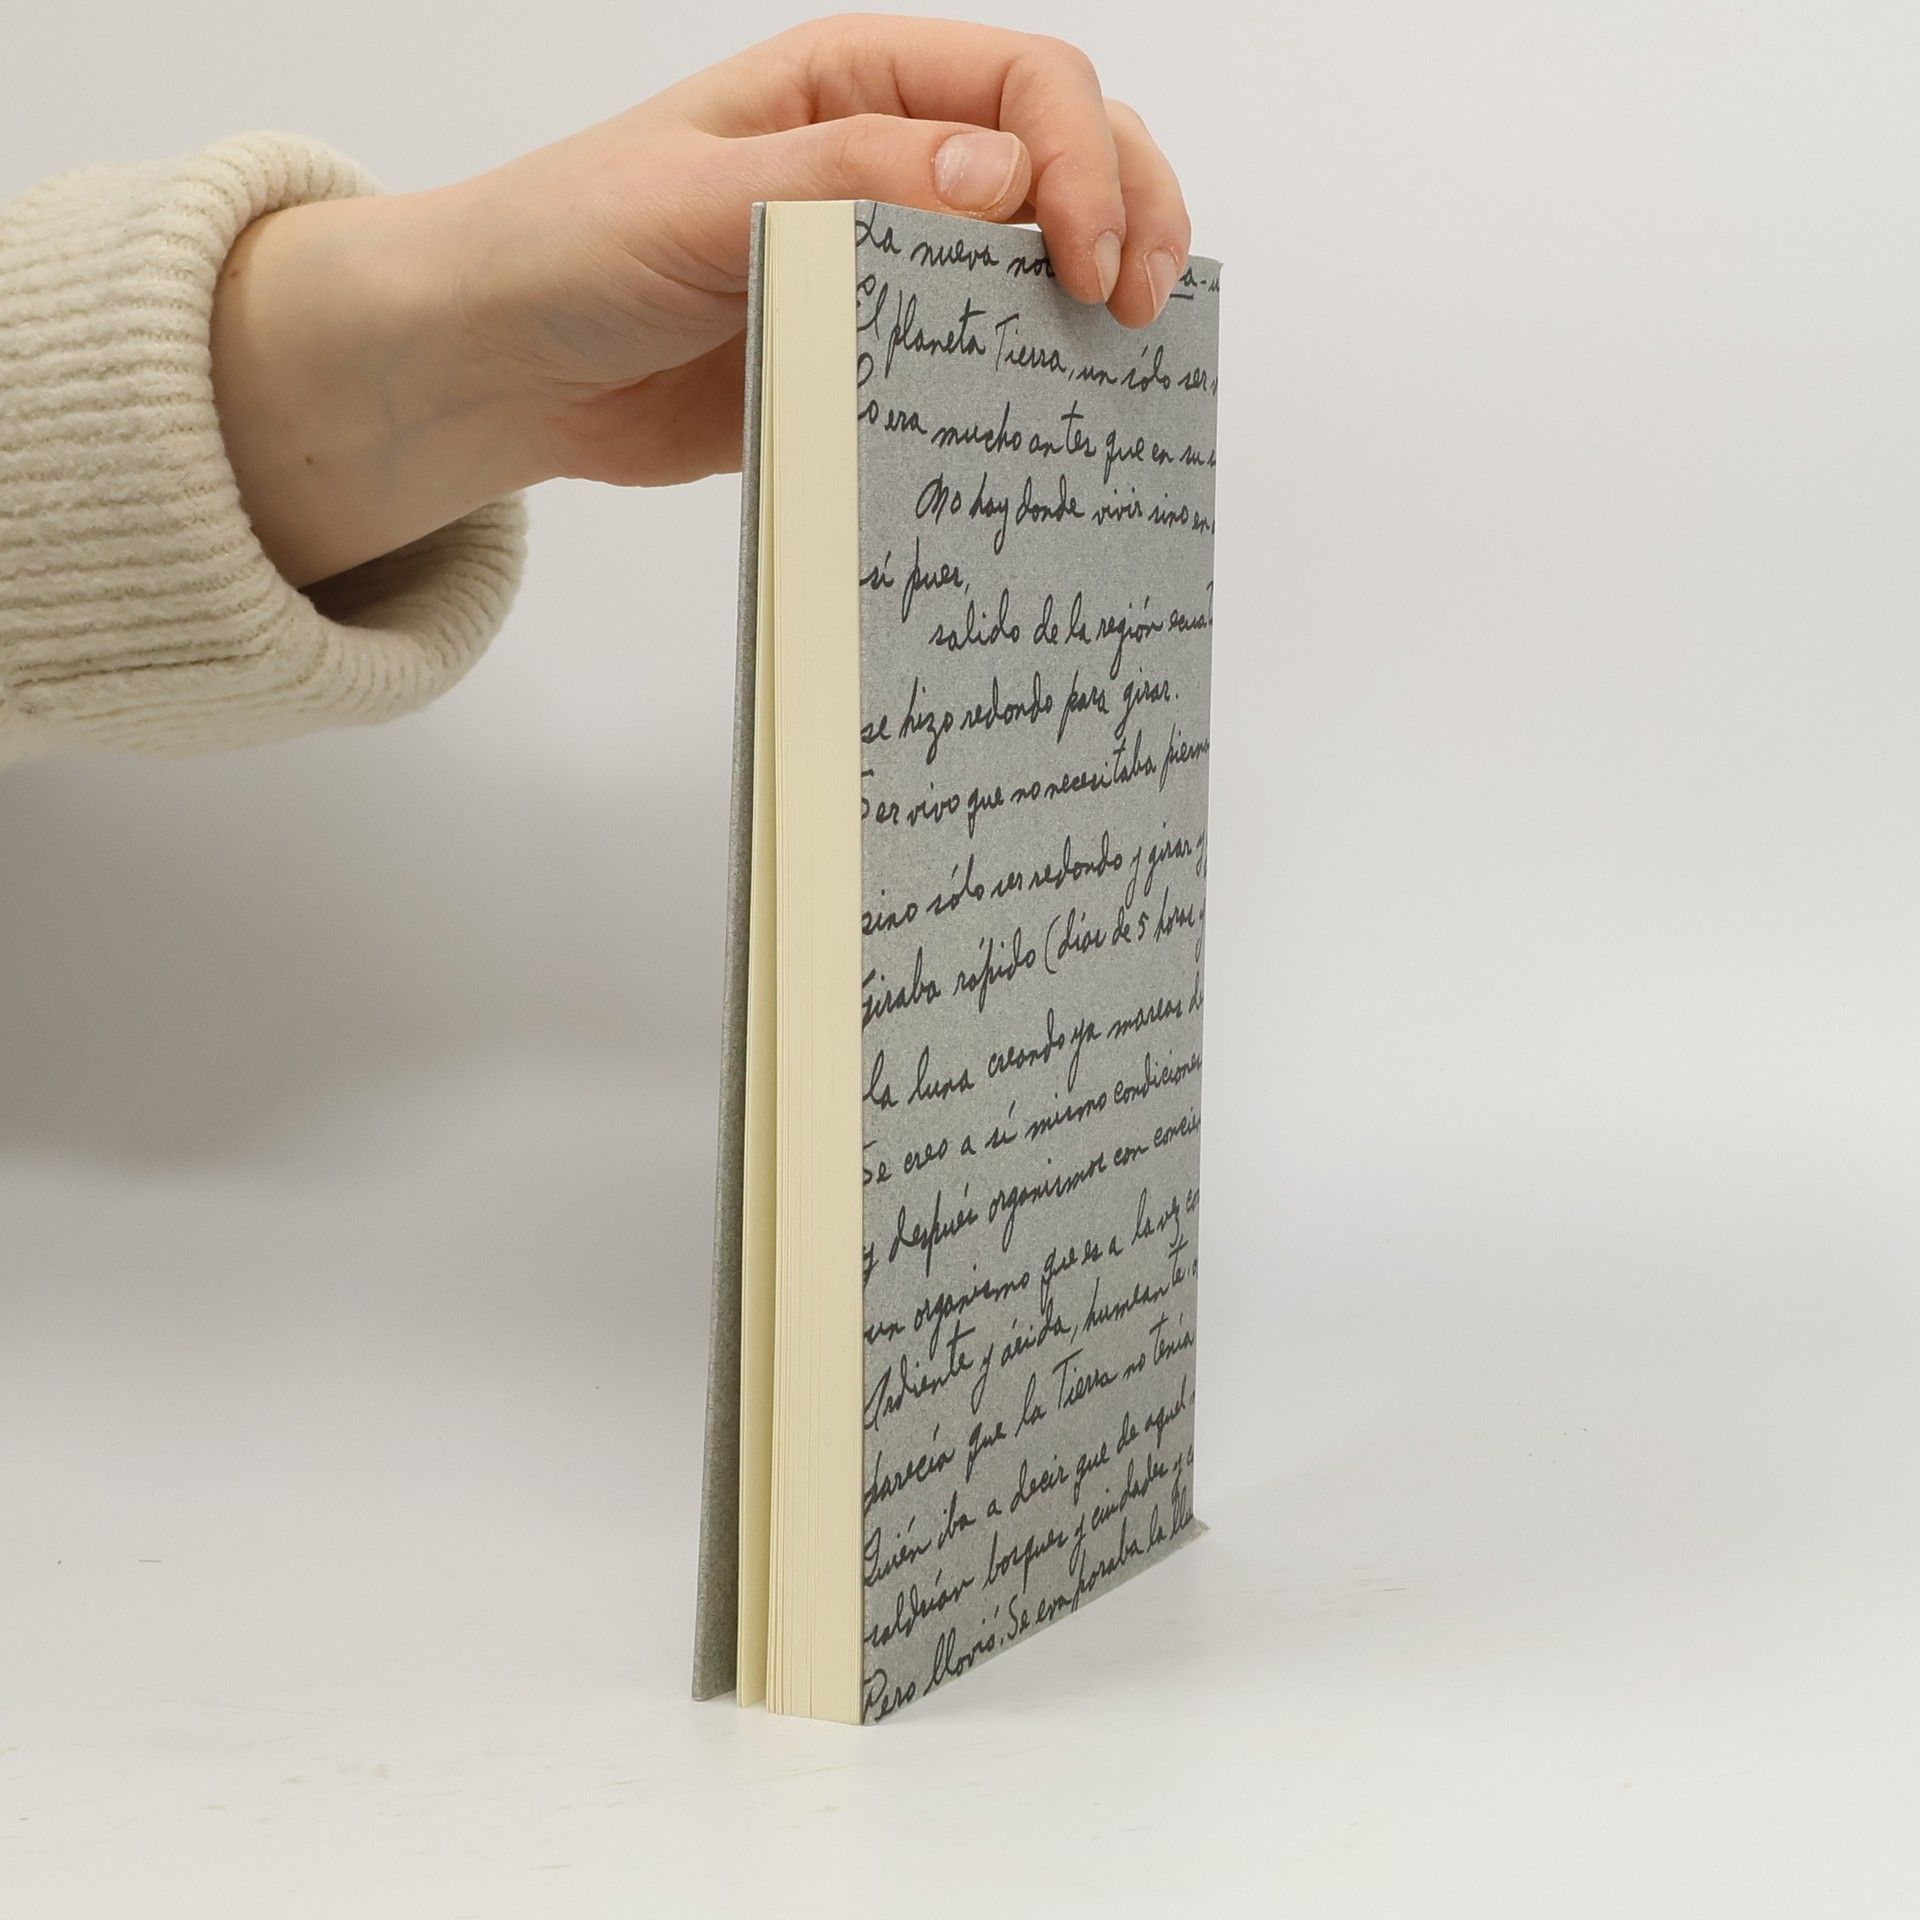 La nueva
El planeta Tierra, un sólo ser
Lo era mucho antes que en su
No hay donde vivir sino en
sí pues,
salido de la región
se hizo redondo para girar.
Ser vivo que no necesitaba
sino sólo ser redondo y girar y
Giraba rápido (días de 5 horas y
la luna creando ya mareas de
Se creo a sí mismo condiciones
y después organismos con
un organismo que es a la vez
Ardiente y árida, humeante,
parecía que la Tierra no tenía
Quién iba a decir que de aquel
saldrían bosques y ciudades y
Pero llovió. Se evaporaba la